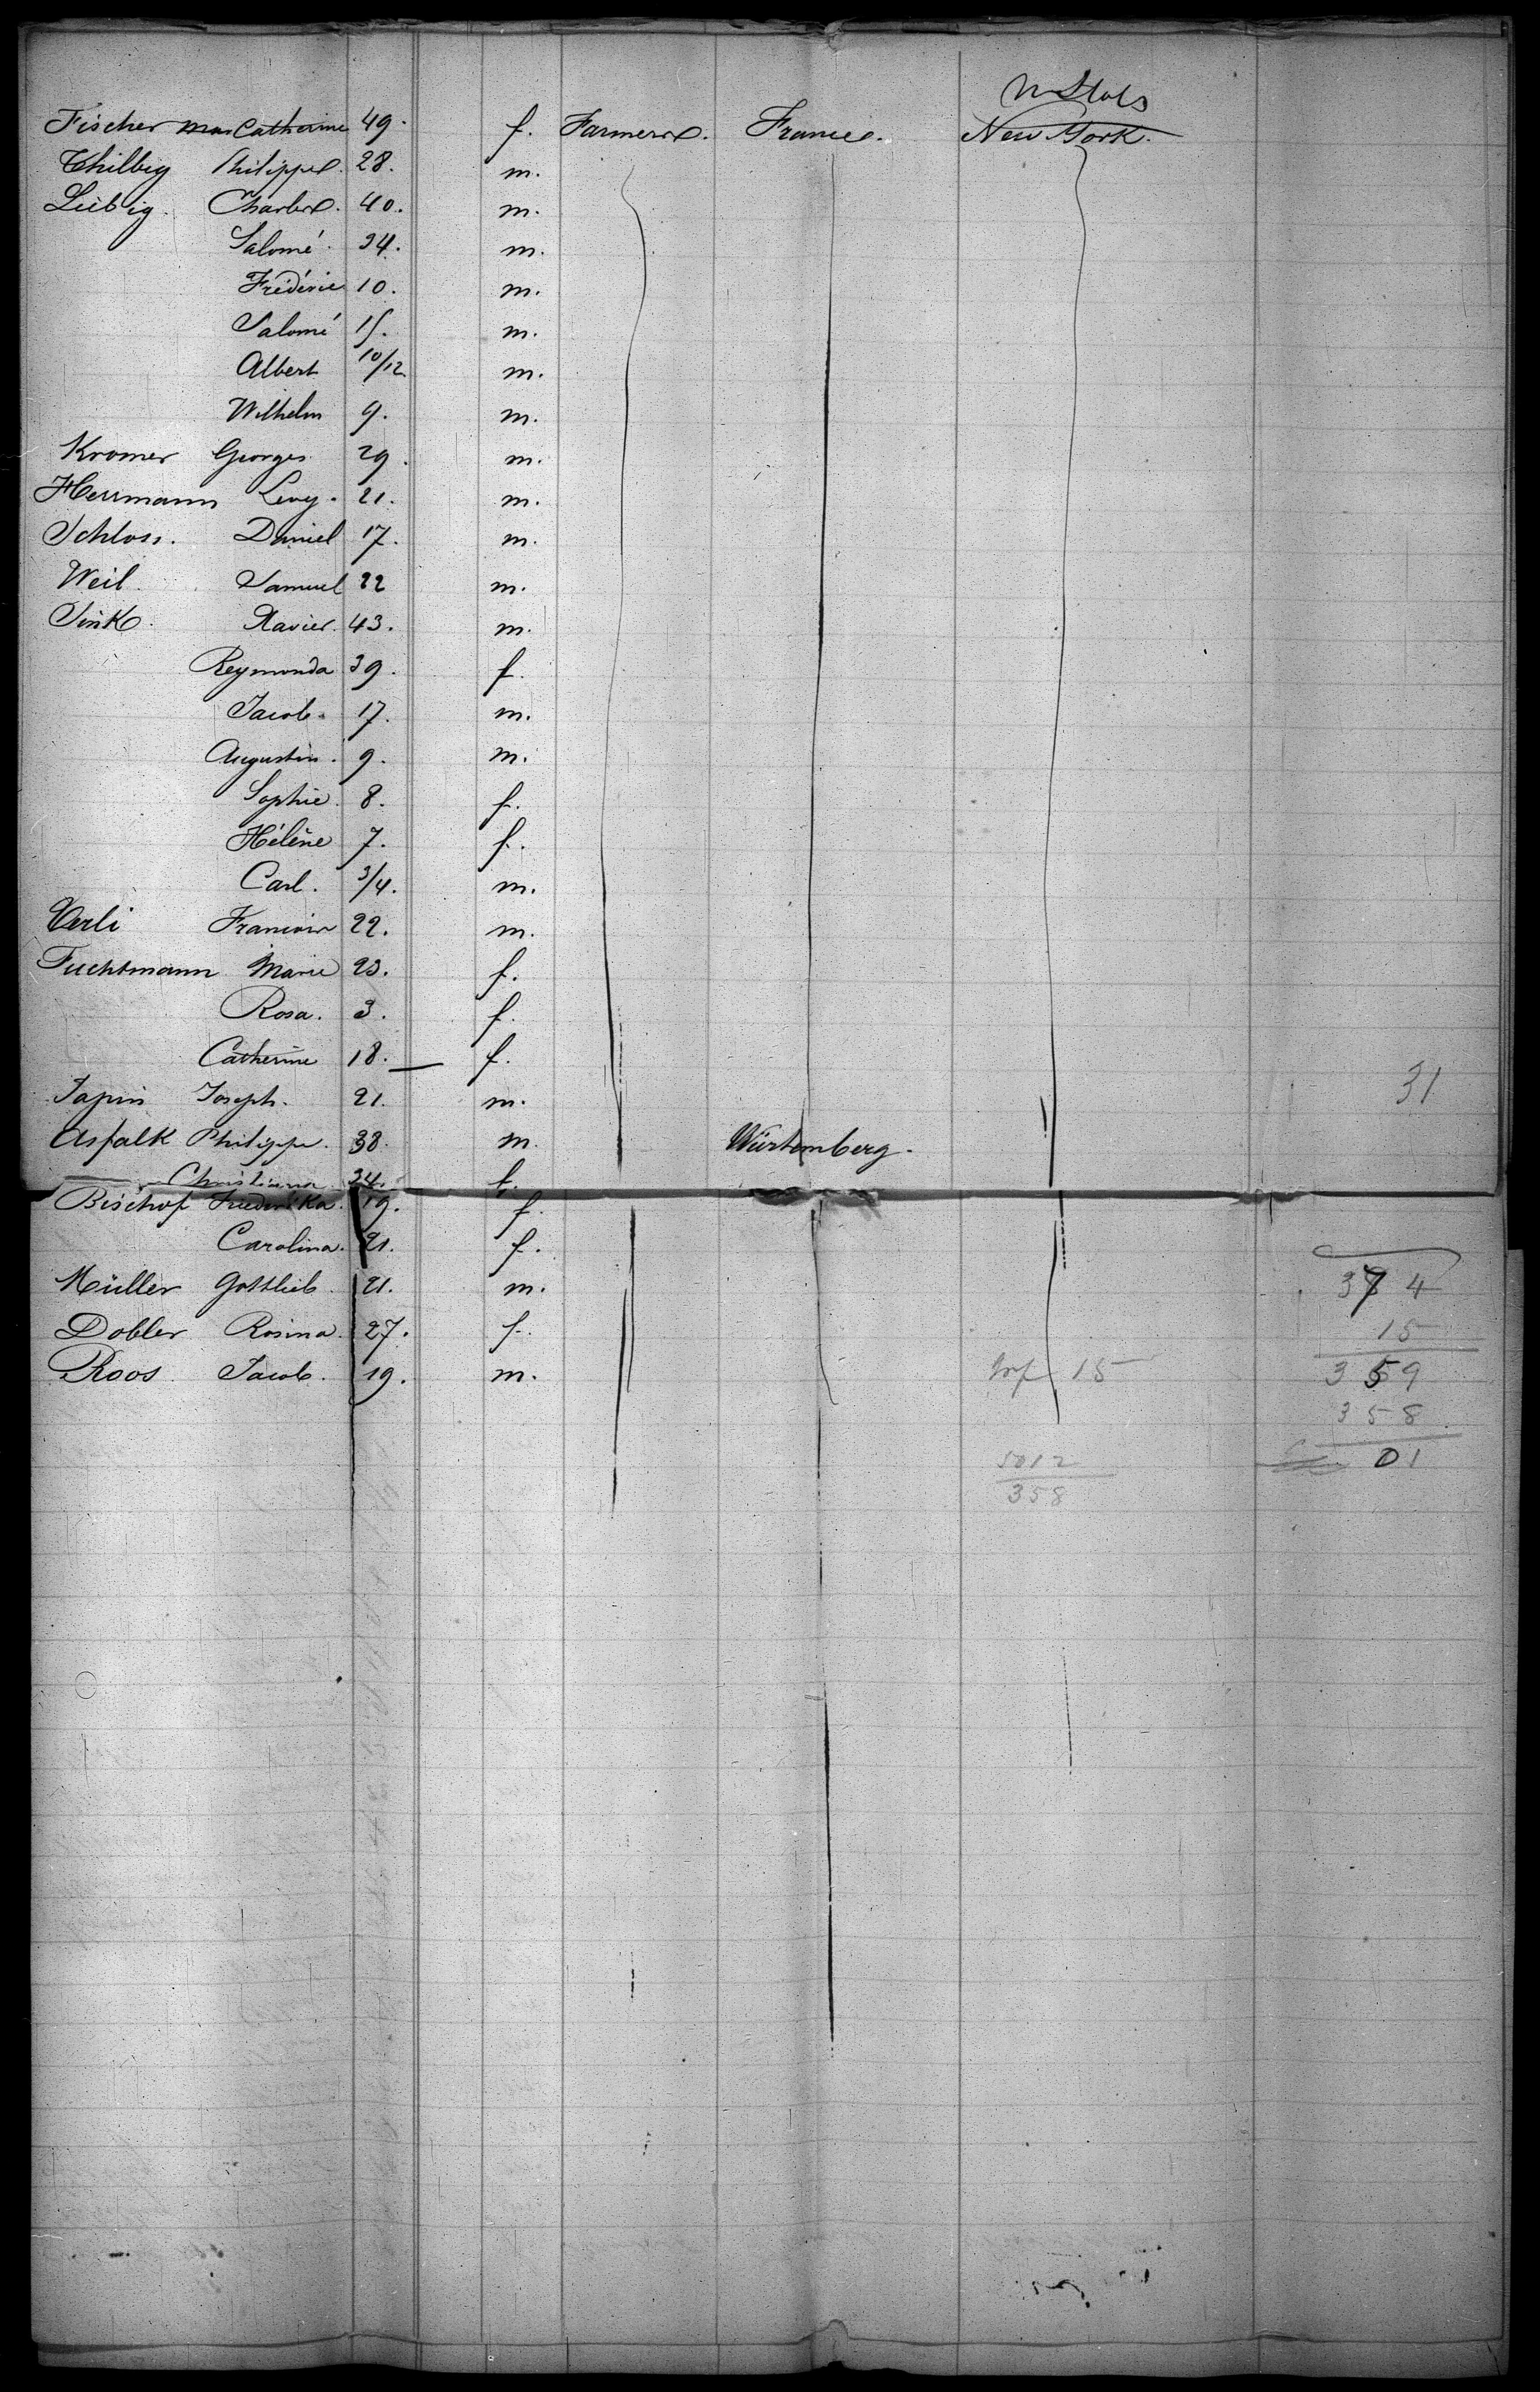 Un Stats
Fischer Catherine 49. f. Farmers. France. New York.
Thilbig Philippe. 28. m.
Liebig. Charles. 40. m.
Salomé. 34. m.
Fréderic 10. m.
Salomé 15. m.
Albert 10/12 m.
Wilhelm 9. m.
Kromer Georges 29. m.
Herrmann Levy. 21. m.
Schloss. Daniel 17. m.
Weil. Samuel 22 m.
Sink. Xavier. 43. m.
Reymonda 39. f.
Jacob. 17. m.
Augustin. 9. m.
Sophie. 8. f.
Hélène 7. f.
Carl. 3/4. m.
Verli Francois 22. m.
Fuchtmann Marie 23. f.
Rosa. 3. f.
Catherine 18. f.
31
Japin Joseph. 21. m.
Asfalk Philippe. 38. m. Würtemberg.
Christiana 34. f.
Bischof Frederika. 19. f.
Carolina. 21. f.
Müller Gottlieb 21. m. 374
Dobler Rosina. 27. f. 15
Roos Jacob. 19. m. Inf 15 359
358
5012 01
358